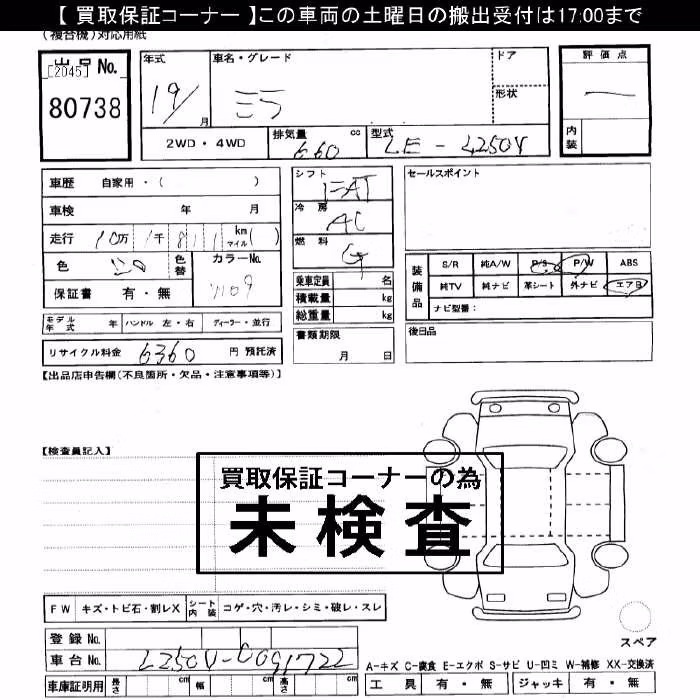 【 買取保証コーナー 】この車両の土曜日の搬出受付は17:00まで
(複合機)対応用紙
[2045] No.
80738
年式 19/ 月
車名・グレード ミラ
ドア
形状
評価点 ー
内装
2WD・4WD
排気量 660 cc
型式 LE - L250V
車歴 自家用・( )
車検 年 月
走行 10万 1千 811 km マイル( )
色
色替
カラーNo.
保証書 有・無
シフト FAT
冷房 AC
燃料 G
乗車定員 名
積載量 kg
総重量 kg
書類期限
月 日
セールスポイント
装備品
S/R 純A/W P/S P/W ABS
純TV 純ナビ 革シート 外ナビ エアB
ナビ型番:
後日品
モデル年式 年 ハンドル 左・右 ディーラー・並行
リサイクル料金 6360 円 預託済
【出品店申告欄(不良箇所・欠品・注意事項等)】
【検査員記入】
買取保証コーナーの為
未検査
FW キズ・トビ石・割レX シート内装 コゲ・穴・汚レ・シミ・破レ・スレ
スペア
登録No.
車台No. L250V-0091722
A-キズ C-腐食 E-エクボ S-サビ U-凹ミ W-補修 XX-交換済
車庫証明用 長さ cm 幅 cm 高さ cm
工具 有・無 ジャッキ 有・無